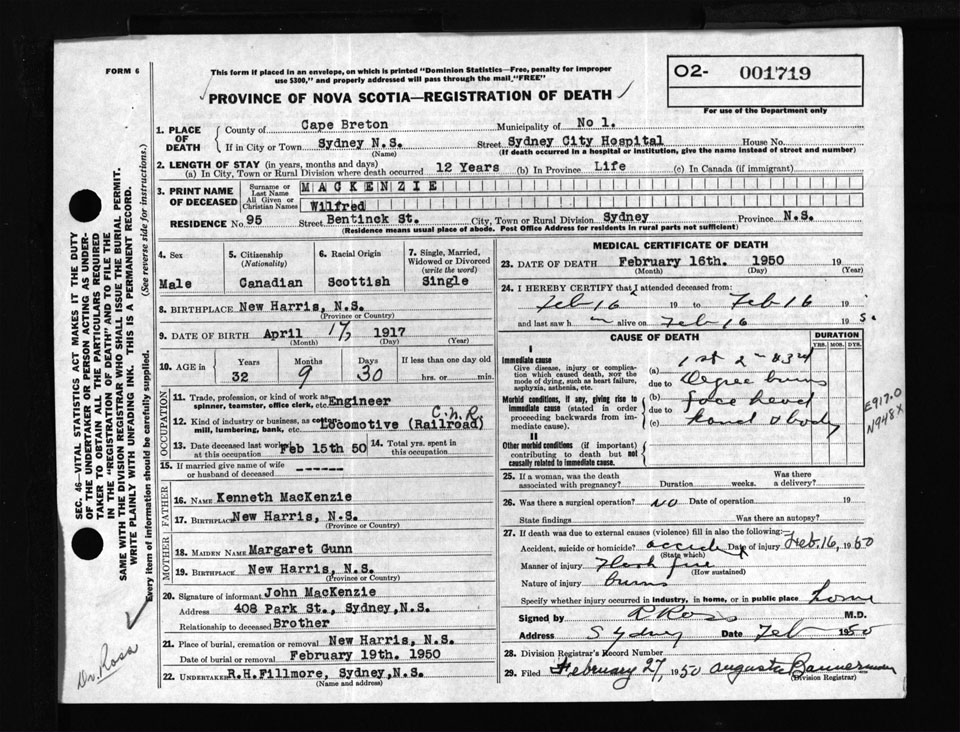 FORM 6
This form if placed in an envelope, on which is printed "Dominion Statistics—Free, penalty for improper
use $300," and properly addressed will pass through the mail "FREE"
PROVINCE OF NOVA SCOTIA—REGISTRATION OF DEATH
O2- 001719
For use of the Department only
1. PLACE OF DEATH
County of Cape Breton Municipality of No 1.
If in City or Town Sydney N.S. Street Sydney City Hospital House No.
(Name) (If death occurred in a hospital or institution, give the name instead of street and number)
2. LENGTH OF STAY (in years, months and days)
(a) In City, Town or Rural Division where death occurred 12 Years (b) In Province Life (c) In Canada (if immigrant)
3. PRINT NAME OF DECEASED
Surname or Last Name MACKENZIE
All Given or Christian Names Wilfred
RESIDENCE No 95 Street Bentinck St. City, Town or Rural Division Sydney Province N.S.
(Residence means usual place of abode. Post Office Address for residents in rural parts not sufficient)
4. Sex Male
5. Citizenship (Nationality) Canadian
6. Racial Origin Scottish
7. Single, Married, Widowed or Divorced (write the word) Single
8. BIRTHPLACE New Harris, N.S.
(Province or Country)
9. DATE OF BIRTH April 17, 1917
(Month) (Day) (Year)
10. AGE in Years 32 Months 9 Days 30 If less than one day old hrs. or min.
OCCUPATION
11. Trade, profession, or kind of work as spinner, teamster, office clerk, etc. Engineer
12. Kind of industry or business, as cotton mill, lumbering, bank, etc. Locomotive (Railroad) C.N.R.
13. Date deceased last worked at this occupation Feb 15th 50
14. Total yrs. spent in this occupation
15. If married give name of wife or husband of deceased ------
FATHER
16. NAME Kenneth MacKenzie
17. Birthplace New Harris, N.S.
(Province or Country)
MOTHER
18. MAIDEN NAME Margaret Gunn
19. BIRTHPLACE New Harris, N.S.
(Province or Country)
20. Signature of informant John MacKenzie
Address 408 Park St., Sydney, N.S.
Relationship to deceased Brother
21. Place of burial, cremation or removal New Harris, N.S.
Date of burial or removal February 19th. 1950
22. UNDERTAKER R.H.Fillmore, Sydney, N.S.
(Name and address)
MEDICAL CERTIFICATE OF DEATH
23. DATE OF DEATH February 16th. 1950 19
(Month) (Day) (Year)
24. I HEREBY CERTIFY that I attended deceased from:
Feb 16 19 to Feb 16 19
and last saw h m alive on Feb 16 195
CAUSE OF DEATH
DURATION
YRS. MOS. DYS.
I
Immediate cause
Give disease, injury or complication which caused death, NOT the mode of dying, such as heart failure, asphyxia, asthenia, etc.
Morbid conditions, if any, giving rise to immediate cause (stated in order proceeding backwards from immediate cause).
II
Other morbid conditions (if important) contributing to death but not causally related to immediate cause.
(a) 1st 2nd & 3rd
due to Degree burns
(b) face head
due to
(c) hand & body
E917.0
N948X
25. If a woman, was the death associated with pregnancy? Duration weeks. Was there a delivery?
26. Was there a surgical operation? NO Date of operation 19
State findings Was there an autopsy?
27. If death was due to external causes (violence) fill in also the following:
Accident, suicide or homicide? accident Date of injury Feb. 16, 1950
(State which)
Manner of injury Flash fire
(How sustained)
Nature of injury burns
Specify whether injury occurred in industry, in home, or in public place home
Signed by R Ross M.D.
Address Sydney Date Feb 1950
28. Division Registrar's Record Number
29. Filed February 27, 1950 Augusta Bannerman
(Division Registrar)
SEC. 46—VITAL STATISTICS ACT MAKES IT THE DUTY
OF THE UNDERTAKER OR PERSON ACTING AS UNDER-
TAKER TO OBTAIN ALL THE PARTICULARS REQUIRED
IN THE "REGISTRATION OF DEATH" AND TO FILE THE
SAME WITH THE DIVISION REGISTRAR WHO SHALL ISSUE THE BURIAL PERMIT.
WRITE PLAINLY WITH UNFADING INK. THIS IS A PERMANENT RECORD.
Every item of information should be carefully supplied. (See reverse side for instructions.)
Dr. Ross